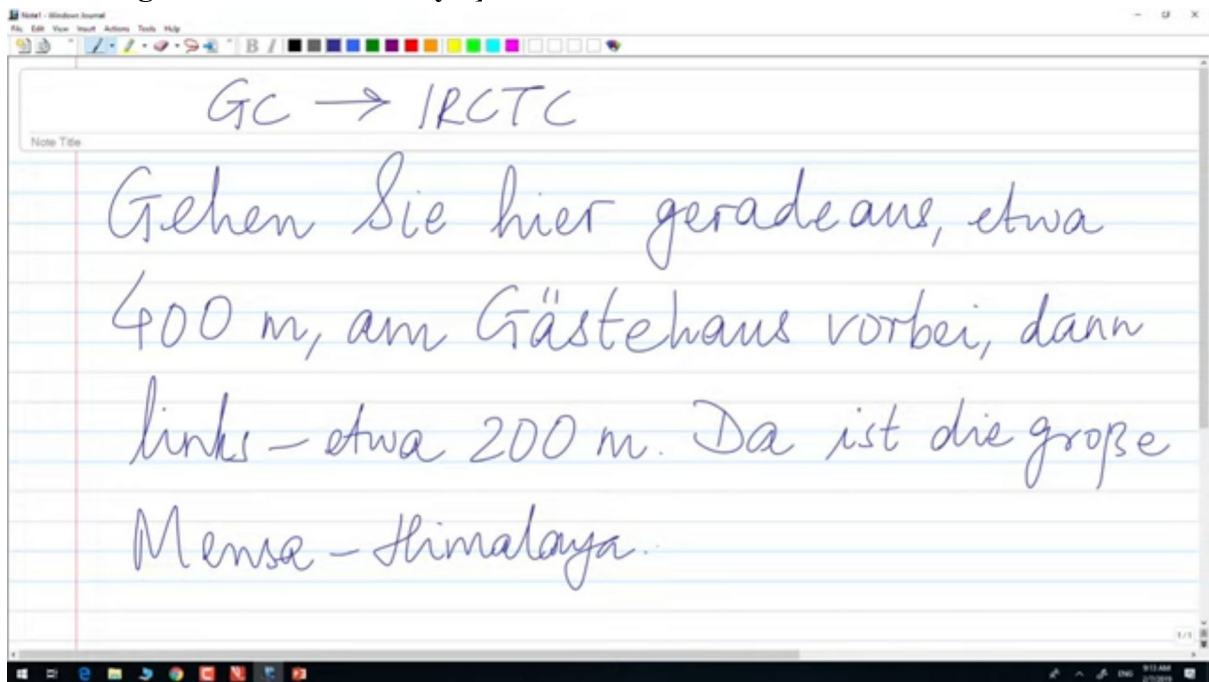 Note1 - Windows Journal
File Edit View Insert Actions Tools Help
GC → IRCTC
Note Title
Gehen Sie hier geradeaus, etwa
400 m, am Gästehaus vorbei, dann
links – etwa 200 m. Da ist die große
Mensa – Himalaya.
1/1
ENG 9:13 AM
2/7/2019